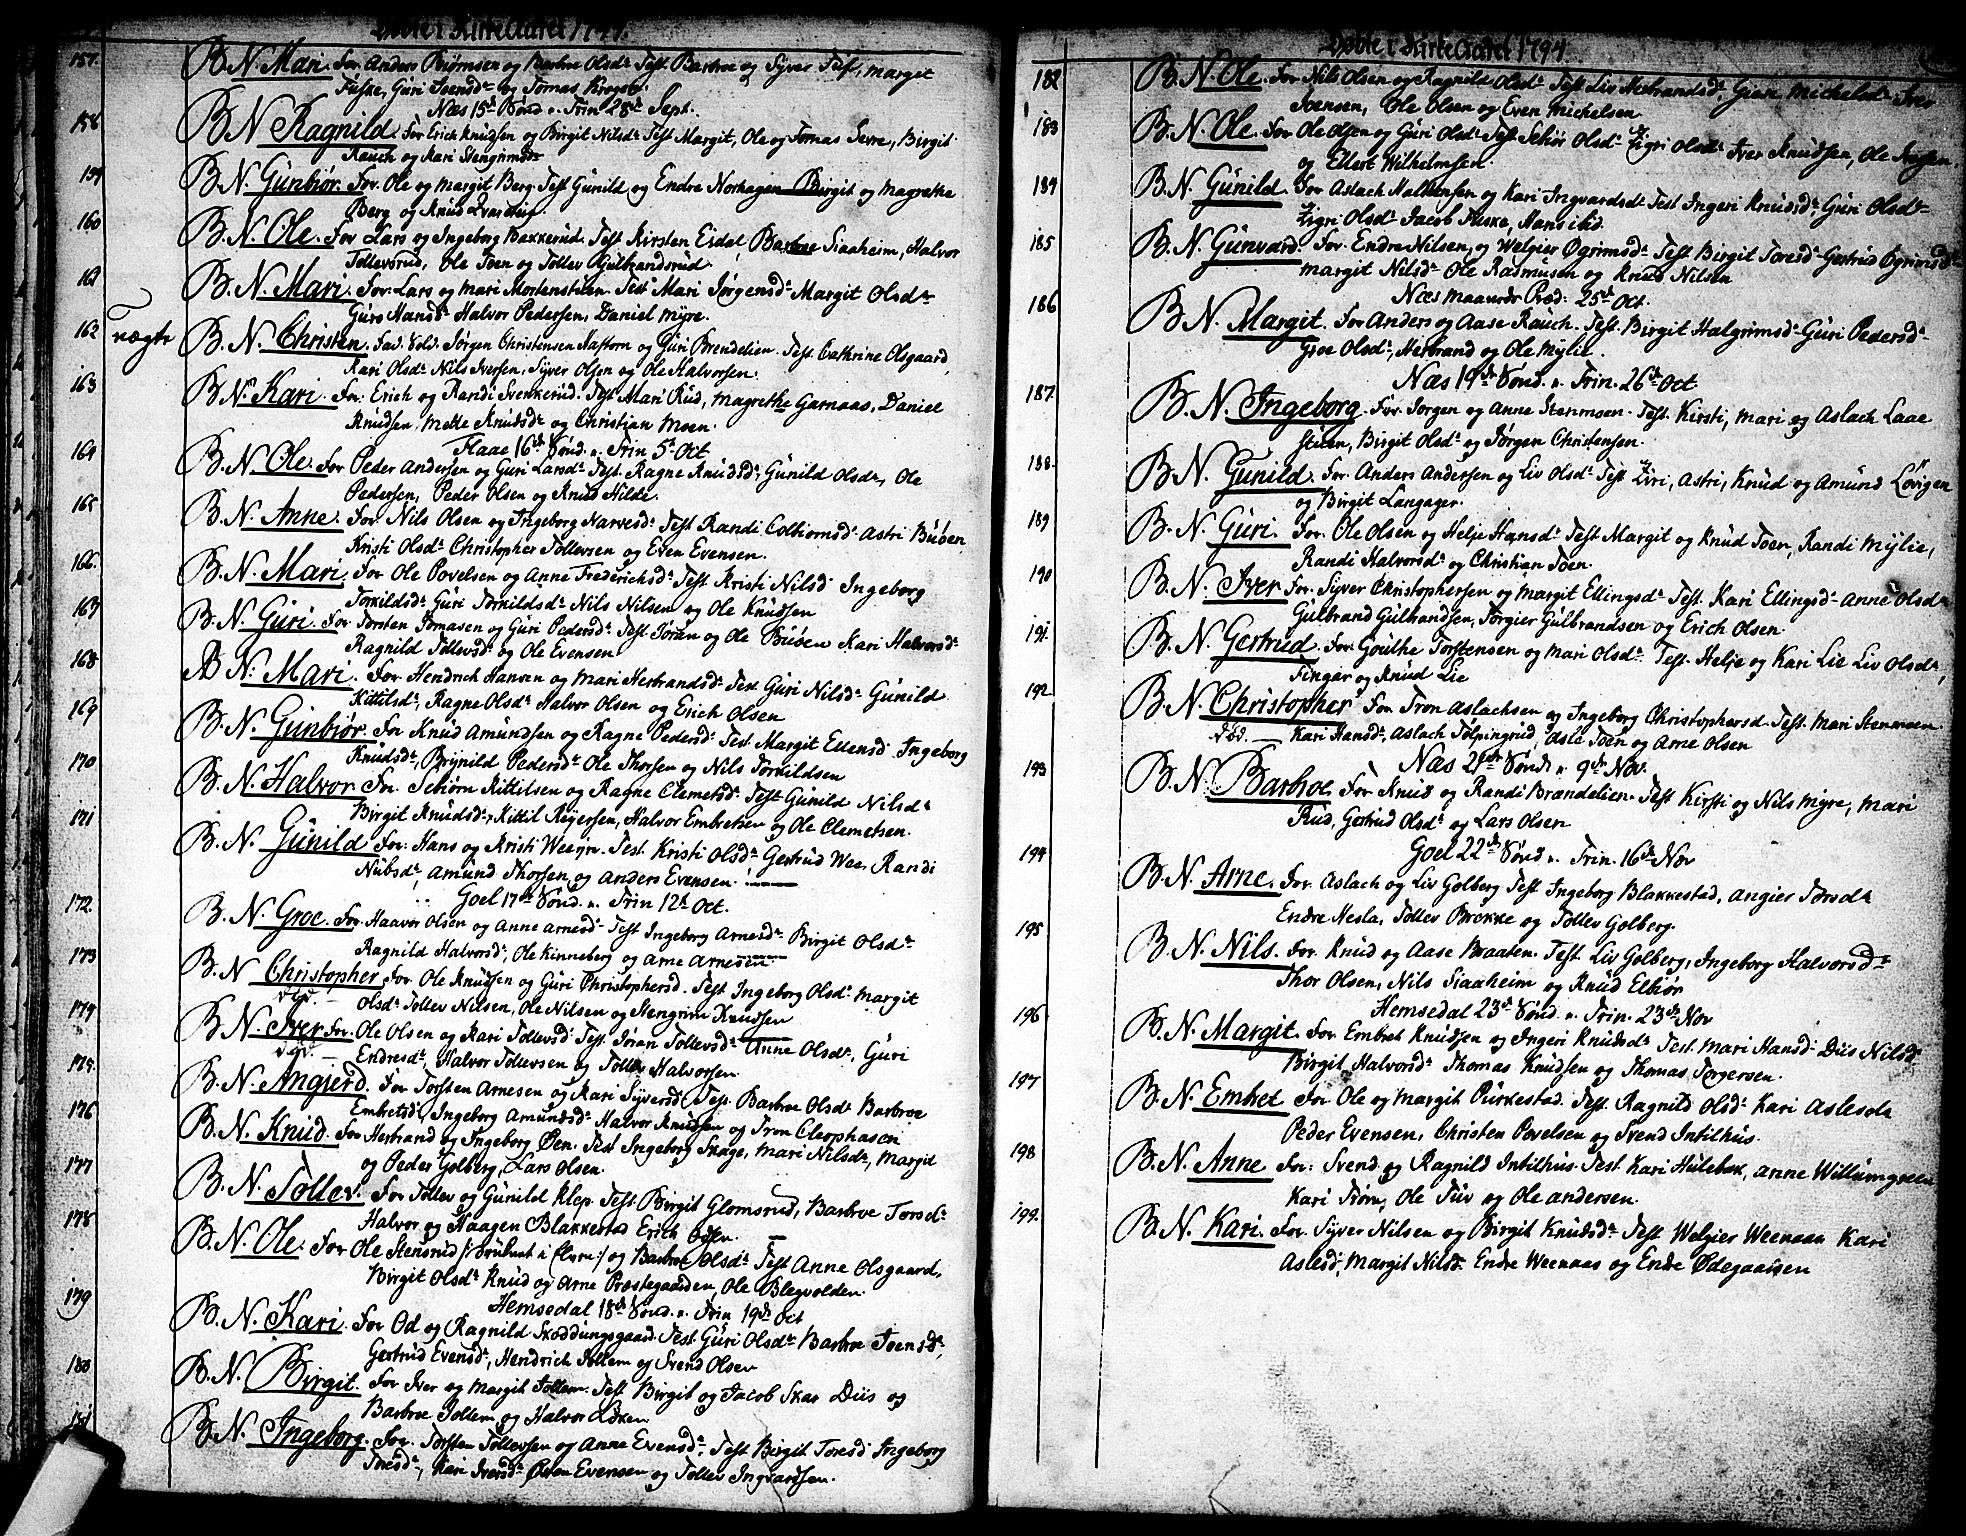 Døbte i Kirke Aaret 1794.
157. B. N. Mari. For. Anders Biørnsen og Barbroe Olsd: Test. Barbroe og Syver Tuf, Margit
Tuske, Guri Toensd: og Tomas Krogeb.
Næs 15d Sønd. n. Trin 28d Sept.
158 B N Ragnild. For Erich Knudsen og Birgit Nilsd: Test Margit, Ole og Tomas Sevre, Birgit
Rauch og Kari Stengrimsd:
159 B. N. Gunbiør. For. Ole og Margit Berg. Test Gunild og Endre Norhagen Birgit og Magrethe
Berg og Knud
160 B. N. Ole. For Lars og Ingeborg Bakkerud. Test Kirsten Eidal, Barbroe Siaaheim, Halvor
Tollevsrud, Ole Toen og Tollev Gulbrandsrud.
161 B. N. Mari. For. Lars og Mari Mortenstuen. Test Mari Jørgensd: Margit Olsd:
Guro Hansd: Halvor Pedersen, Daniel Myre.
162 uægte B. N. Christen. Fad. Sold. Jørgen Christensen Naftorn og Guri Brendelien. Test Cathrine Olsgaard,
Kari Olsd: Nils Iversen, Syver Olsen og Ole Halvorsen.
163 B N. Kari. For: Erich og Randi Svenkerud. Test Mari Rud, Magrethe Garnaas, Daniel
Knudsen, Mette Knudsd: og Christian Moen.
Flaae 16d Sønd. n. Trin 5d Oct
164 B. N Ole. For Peder Andersen og Guri Larsd: Test. Ragne Knudsd:, Gunild Olsd:, Ole
Pedersen, Peder Olsen og Knud Hilde.
165 B. N. Anne. For. Nils Olsen og Ingeborg Narvesd: Test Randi Colbiornsd: Astri Buøen
Kristi Olsd: Christopher Tollevsen og Even Evensen.
166. B. N. Mari. For Ole Povelsen og Anne Frederichsd: Test. Kristi Nilsd Ingeborg
Torkildsd: Guri Torkildsd: Nils Nilsen og Ole Knudsen
167 B. N. Guri. For Torsten Tomasen og Guri Pedersd: Test Joran og Ole Buøen Kari Halvorsd:
Ragnild Tollevsd: og Ole Evensen
168 B N. Mari. For. Hendrich Hansen og Mari Herbrandsd: Test Guri Nilsd: Gunild
Kittilsd:, Ragne Olsd: Halvor Olsen og Erich Olsen
169 B. N. Gunbiør. For Knud Amundsen og Ragne Pedersd: Test. Margit Ellensd: Ingeborg
Knudsd:, Brynild Pedersd: Ole Thorsen og Nils Torkildsen
170 B. N. Halvor For. Sebiørn Kittilsen og Ragne Clemetsd: Test Gunild Nilsd:
Birgit Knudsd:, Kittil Reyersen, Halvor Embretsen og Ole Clemetsen.
171 B. N. Gunild For: Hans og Kristi Weern. Test. Kristi Olsd: Gertrud Wee, Randi
Nubsd:, Amund Thorsen og Anders Evensen.
Goel 17d Sønd. n. Trin 12d Oct.
172. B. N. Groe. For. Haavor Olsen og Anne Arnesd: Test Ingeborg Arnesd: Birgit Olsd:
Ragnild Halvorsd:, Ole Kinneberg og Arne Arnesen
173 B. N Christopher For. Ole Knudsen og Guri Christophersd. Test Ingeborg Olsd: Margit
død. Olsd: Tollev Nilsen, Ole Nilsen og Stengrim Knudsen
174 B. N. Iver For. Ole Olsen og Kari Tollevsd: Test. Joran Tollevsd: Anne Olsd:, Guri
død. Endresd:, Halvor Tollevsen og Tollev Halvorsen
175. B. N. Angierd. For Torsten Arnesen og Kari Syversd: Test. Barbroe Olsd: Barbroe
Embretsd: Ingeborg Amundsd: Halvor Knudsen og Tron Cleophasen
176 B. N. Knud. For Herbrand og Ingeborg Øen. Test Ingeborg Skage, Mari Nilsd:, Margit
og Peder Golberg, Lars Olsen.
177 B. N. Tollev. For Tollev og Gunild Klep. Test Birgit Glomsrud, Barbroe Torsd:
Halvor og Haagen Blakkestad Erich Olsen.
178 B. N. Ole. For Ole Stensrud /: Drukned i Elven :/ og Barbroe Olsd: Test Anne Olsgaard,
Birgit Olsd: Knud og Arne Præstegaarden, Ole Blegvolden.
Hemsedal 18d Sønd. n. Trin 19d Oct
179 B. N. Kari. For Od og Ragnild Skøddungsgaard. Test. Guri Olsd: Barbroe Toensd:,
Gertrud Evensd:, Hendrich Tollem og Svend Olsen
180 B. N. Birgit. For Iver og Margit Tollem. Test Birgit og Jacob Skar Diis og
Barbroe Tollem og Halvor Løken
181 B. N. Ingeborg. For. Torsten Tollevsen og Anne Evensd: Test Birgit Toresd: Ingeborg
Toresd:, Kari Iversd: Even Evensen og Tollev Ingvardsen.
Døbte i Kirke Aaret 1794
182 B. N. Ole For Nils Olsen og Ragnild Olsd: Test Liv Herbrandsd:, Gien Michelsd: Iver
Toensen, Ole Olsen og Even Michelsen
183 B. N. Ole. For Ole Olsen og Guri Olsd: Test Sebiør Olsd: Zigri Olsd: Iver Knudsen, Ole Iversen
og Ellert Wilhelmsen.
184 B. N. Gunild For Aslach Halvorsen og Kari Ingvardsd: Test Ingeri Knudsd:, Guri Olsd:
Zigri Olsd: Jacob Tuske, Hans ibid.
185 B. N. Gunvard. For. Endre Nilsen, og Welgier Øgrimsd: Test Birgit Toresd: Gertrud Øgrimsd:
Margit Nilsd: Ole Rasmusen og Knud Nilsen
Næs Maaneds Præd: 25d Oct.
186 B N. Margit. For Anders og Aase Rauch. Test. Birgit Halgrimsd: Guri Pedersd:
Groe Olsd:, Herbrand og Ole Mylie.
Næs 19d Sønd. n. Trin. 26d Oct
187. B. N. Ingeborg. For. Jorgen og Anne Stenmoen. Test. Kirsti, Mari og Aslach Laae
stuen, Birgit Olsd: og Jørgen Christensen.
188. B. N. Gunild. For. Anders Andersen og Liv Olsd: Test Ziri, Astri, Knud og Amund Løvigen
og Birgit Langager.
189 B. N. Guri. For. Ole Olsen og Helje Hansd: Test Margit og Knud Toen, Randi Mylie,
Randi Halvorsd: og Christian Toen.
190 B. N. Iver For. Syver Christophersen og Margit Ellingsd: Test. Kari Ellingsd: Anne Olsd:
Gulbrand Gulbrandsen, Torgier Gulbrandsen og Erich Olsen.
191. B. N. Gertrud. For. Gouthe Torstensen og Mari Olsd: Test. Helje og Kari Lie Liv Olsd:,
Fingar og Knud Lie
192 B. N. Christopher For Tron Aslachsen og Ingeborg Christophersd. Test. Mari Stenmoen
død. Kari Hansd:, Aslach Tolpingrud, Asle Toen og Arne Olsen
Næs 21d Sønd. n. 9d Nov.
193 B. N. Barbroe. For Knud og Randi Brændelien. Test Kirsti og Nils Myre, Mari
Rud, Gertrud Olsd: og Lars Olsen
Goel 22d Sønd n. Trin. 16d Nov
194 B. N. Arne. For. Aslach og Liv Golberg Test Ingeborg Blakkestad, Angier Torsd:
Endre Hesla, Tollev Brekke og Tollev Golberg.
195 B. N. Nils. For. Knud og Aase Braaten. Test. Liv Golberg, Ingeborg Halvorsd:
Thor Olsen, Nils Siaaheim og Knud Elbiør
Hemsedal 23d Sønd. n. Trin. 23d Nov
196 B. N. Margit. For. Embret Knudsen og Ingeri Knudsd: Test. Mari Hansd: Diis Nilsd:
Birgit Halvorsd: Thomas Knudsen og Thomas Torgersen.
197 B. N. Embret For Ole og Margit Kirkestad. Test. Ragnild Olsd: Kari Aslesd:
Peder Evensen, Christen Povelsen og Svend Intilhus.
198 B. N. Anne For: Svend og Ragnild Intilhus. Test. Kari Hulebak, Anne Willumgveen
Kari Trøm, Ole Tuv og Ole Andersen.
199. B. N. Kari. For. Syver Nilsen og Birgit Knudsd: Test Welgier Weenaas Kari
Aslesd:, Margit Nilsd. Endre Weenaas og Endre Ødegaarden